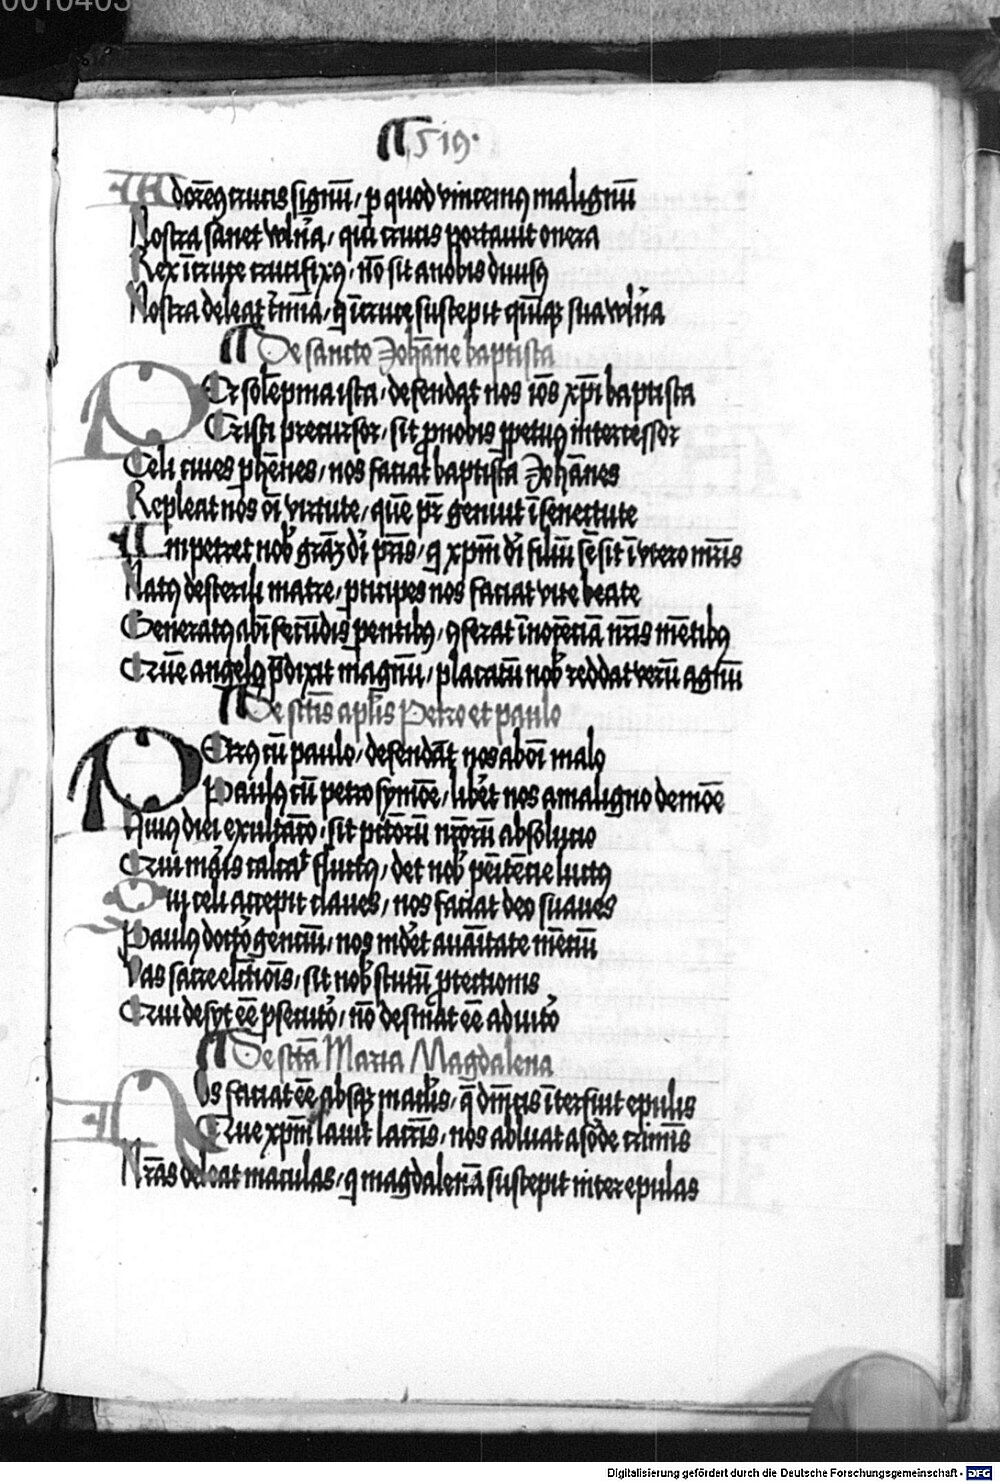 0010403
519.
Adorem9 crucis signū, p quod vincem9 malignū
Nostra sanet vln̄a, qui crucis portauit onera
Rex ī cruce crucifix9, nō sit a nobis diuis9
Nostra deleat c̄mīa, q ī cruce suscepit qīnq3 sua vln̄a
De sancto Johāne baptista
Et solēpnia ista, defendat nos iōs xp̄i baptista
Cristi precursor, sit p nobis ppetu9 intercessor
Celi ciues phēnes, nos faciat baptista Johānes
Repleat nos dī virtute, quē pr̄ genuit ī senectute
Impetret nob grāz dī prīs, q xpm̄ dī filiū sēsit ī vtero mr̄is
Nat9 de sterili matre, pticipes nos faciat vite beate
Generat9 ab īfecūdis pentib9, 9ferat īnocēciā nr̄is mētib9
Quē angel9 p̄dixit magnū, placatū nob reddat verū agnū
De sctīs aplīs Petro et paulo
Petr9 cū paulo, defendāt nos ab oī malo
Paul9 cū petro symōe, libēt nos a maligno demōe
Hui9 diei exultāco, sit pctōrū nr̄orū absolucio
Cui mar̄is calcat fluct9, det nob pēitēcie luct9
Qui celi accepit claues, nos faciat deo suaues
Paul9 doctō genciū, nos mdet a uanītate mēciū
Vas sacre elctiōis, sit nob scutū ptectionis
Qui desyt ēe psecutō, nō desinat ēe adiutō
De sctā Maria Magdalena
Nos faciat ēe absq3 maclis, q dn̄icis īterfuit epulis
Que xpm̄ lauit lacrīs, nos abluat a sōde crimīs
Nr̄as deleat maculas, q magdalenā suscepit inter epulas
Digitalisierung gefördert durch die Deutsche Forschungsgemeinschaft - DFG